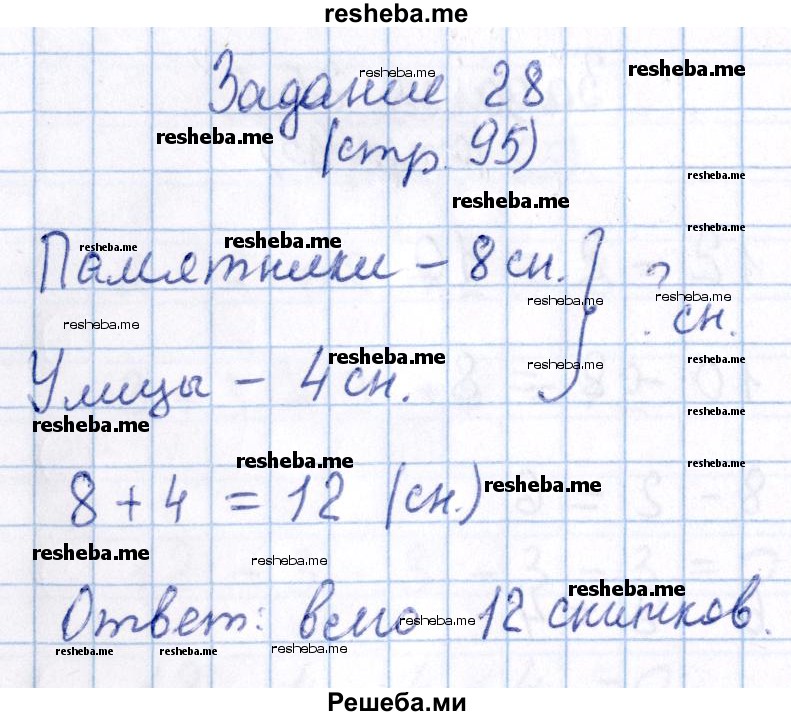 resheba.me
Задание 28
(стр. 95)
Памятники – 8 сн.
? сн.
Улицы – 4 сн.
8 + 4 = 12 (сн.)
Ответ: всего 12 снимков.
Решеба.ми